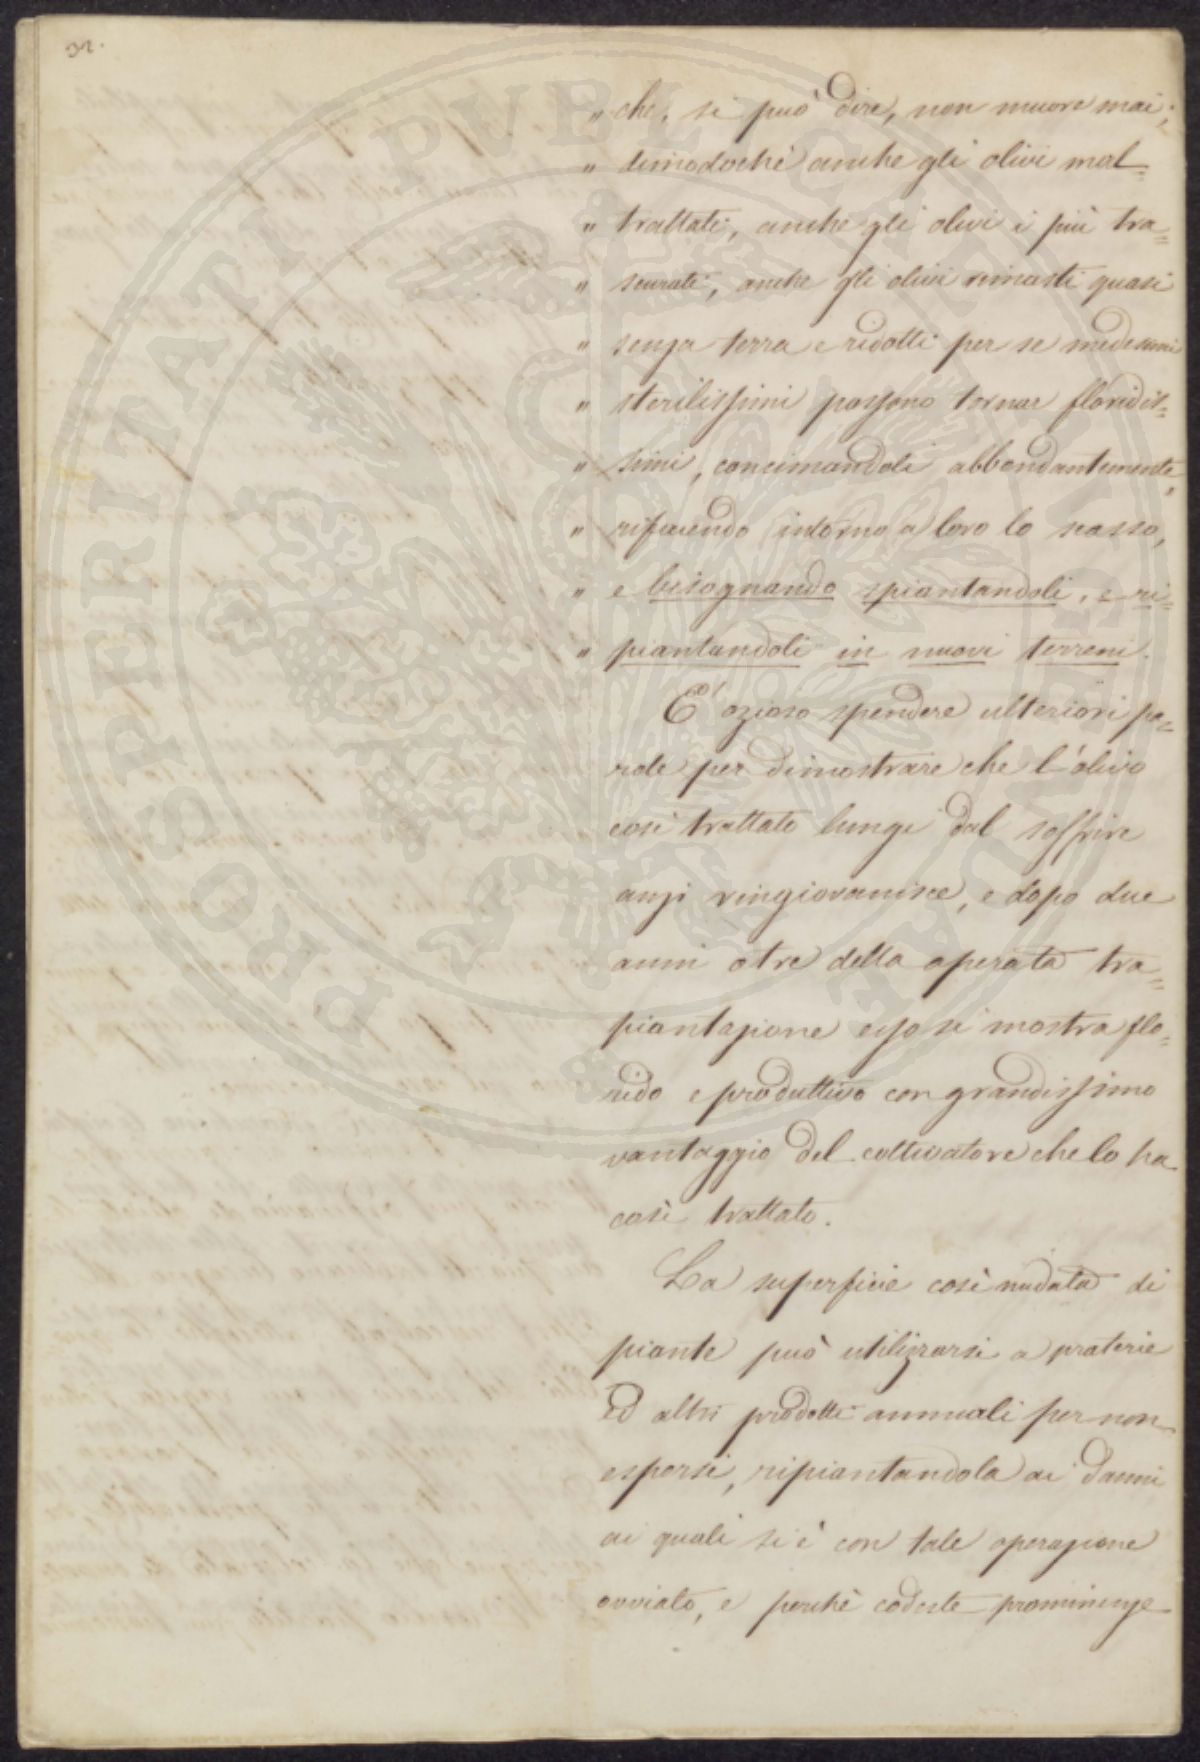 32.
" che, si può dire, non muore mai;
" dimodochè anche gli olivi mal-
" trattati, anche gli olivi i più tra=
" scurati, anche gli olivi rimasti quasi
" senza terra e ridotti per se medesimi
" sterilissimi possono tornar floridis=
" simi, concimandoli abbondantemente,
" rifacendo intorno a loro lo scasso,
" e bisognando spiantandoli, e ri-
" piantandoli in nuovi terreni.
E' ozioso spendere ulteriori pa=
role per dimostrare che l'olivo
così trattato lungi dal soffrire
anzi ringiovanisce, e dopo due
anni o tre della operata tra=
piantazione esso si mostra flo=
rido e produttivo con grandissimo
vantaggio del coltivatore che lo ha
così trattato.
La superficie così nudata di
piante può utilizzarsi a praterie
ed altri prodotti annuali per non
esporsi, ripiantandola ai danni
ai quali si è con tale operazione
ovviato, e perchè codeste prominenze
PROSPERITATI PUBLICAE